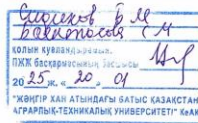 қолын куәландырамын.
ПЖЖ басқармасының басшысы
2025 ж. « 20 » 01
"ЖӘҢГІР ХАН АТЫНДАҒЫ БАТЫС ҚАЗАҚСТАН
АГРАРЛЫҚ-ТЕХНИКАЛЫҚ УНИВЕРСИТЕТІ" КеАҚ